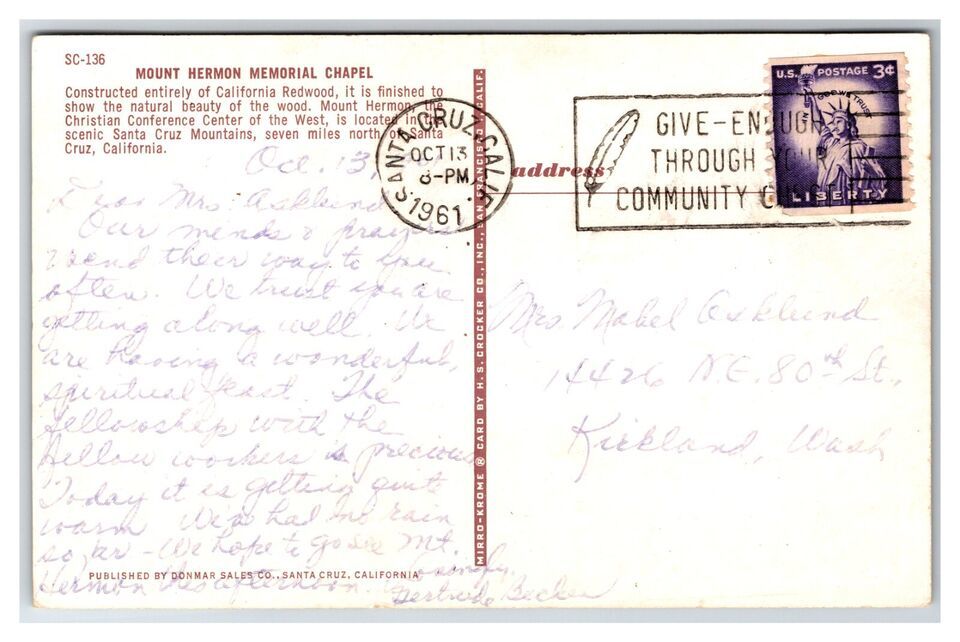 SC-136
MOUNT HERMON MEMORIAL CHAPEL
Constructed entirely of California Redwood, it is finished to
show the natural beauty of the wood. Mount Hermon, the
Christian Conference Center of the West, is located in the
scenic Santa Cruz Mountains, seven miles north of Santa
Cruz, California.
Oct. 13,
Dear Mrs. Asklund
Our minds & prayers
wend their way to you
often. We trust you are
getting along well. We
are having a wonderful,
spiritual feast. The
fellowship with the
fellow workers is precious
Today it is getting quite
warm We've had no rain
so far - We hope to go see Mt.
Hermon this afternoon.
Gertrude Becker
PUBLISHED BY DONMAR SALES CO., SANTA CRUZ, CALIFORNIA
MIRRO-KROME ® CARD BY H. S. CROCKER CO., INC., SAN FRANCISCO 1, CALIF.
SANTA CRUZ, CALIF.
OCT 13
8-PM
1961
address
GIVE-ENOUGH
THROUGH YOUR
COMMUNITY CHEST
U.S. POSTAGE 3¢
IN GOD WE TRUST
LIBERTY
Mrs. Mabel Asklund
14426 N.E. 80th St.
Kirkland, Wash